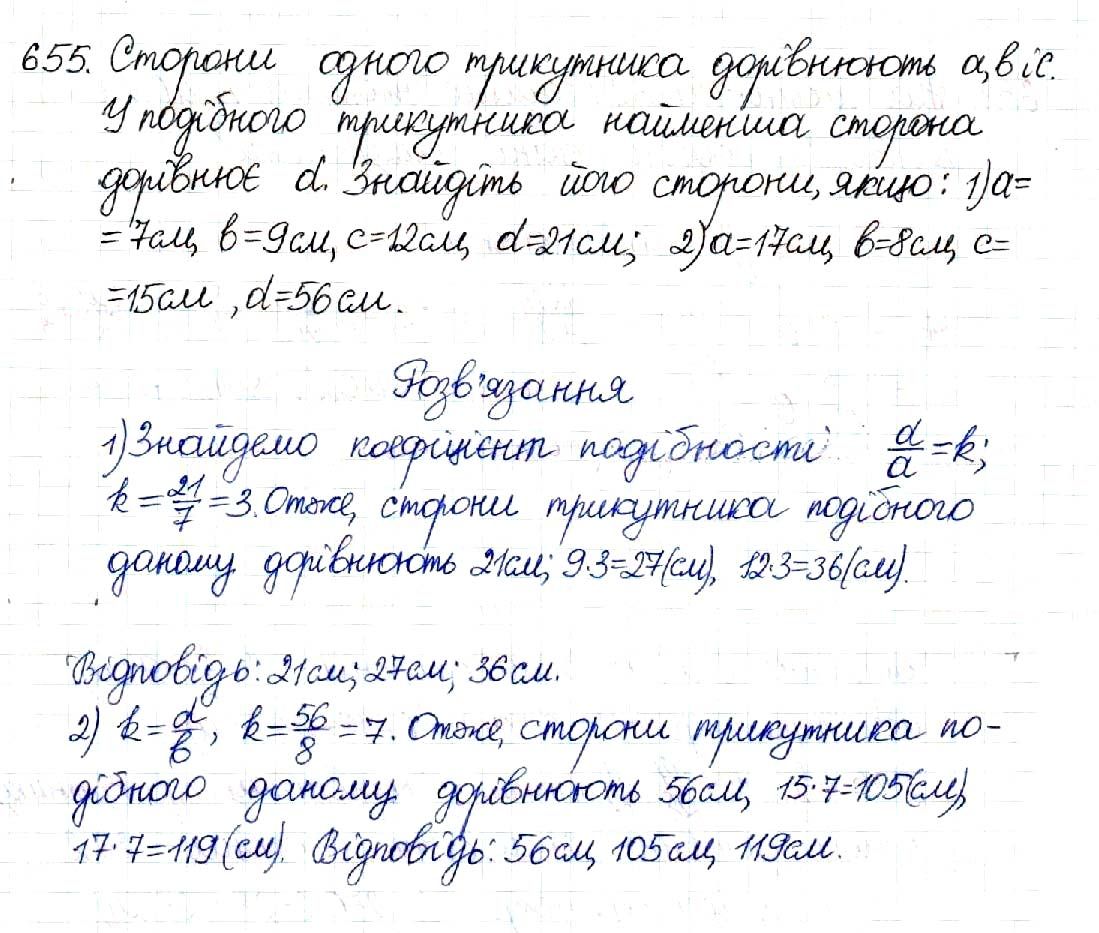 655. Сторони одного трикутника дорівнюють а, в і с.
У подібного трикутника найменша сторона
дорівнює d. Знайдіть його сторони, якщо: 1) а=
= 7см, в=9см, с=12см, d=21см; 2) а=17см, в=8см, с=
=15см, d=56см.
Розв'язання
1) Знайдемо коефіцієнт подібності d/a = k;
k = 21/7 = 3. Отже, сторони трикутника подібного
даному дорівнюють 21см; 9·3=27(см), 12·3=36(см).
Відповідь: 21см; 27см; 36см.
2) k = d/в, k = 56/8 = 7. Отже, сторони трикутника по-
дібного даному дорівнюють 56см, 15·7=105(см),
17·7=119(см). Відповідь: 56см, 105см, 119см.